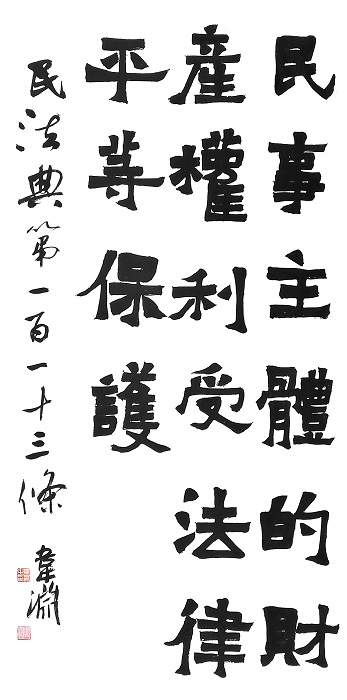 民事主體的財
產權利受法律
平等保護
民法典第一百一十三條
韋淵